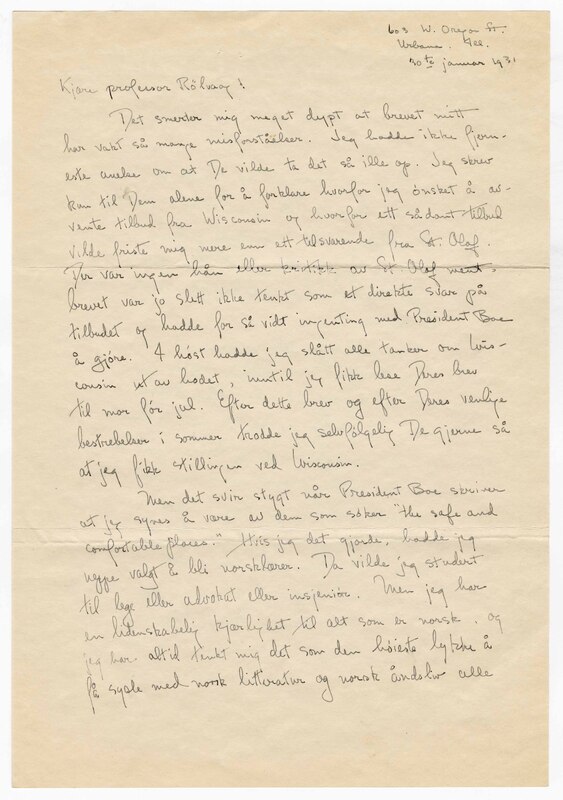 603 W. Oregon St.
Urbana. Ill.
30te januar 1931
Kjære professor Rölvaag!
Det smerter mig meget dypt at brevet mitt
har vakt så mange misforståelser. Jeg hadde ikke fjern-
este anelse om at De vilde ta det så ille op. Jeg skrev
kun til Dem alene for å forklare hvorfor jeg ønsket å av-
vente tilbud fra Wisconsin og hvorfor ett sådant tilbud
vilde friste mig mere enn ett tilsvarende fra St. Olaf.
Der var ingen hån eller kritikk av St. Olaf ment.
brevet var jo slett ikke tenkt som et direkte svar på
tilbudet og hadde for så vidt ingenting med President Boe
å gjöre. I höst hadde jeg slått alle tanker om Wis-
consin ut av hodet, inntil jeg fikk lese Deres brev
til mor för jul. Efter dette brev og efter Deres venlige
bestrebelser i sommer trodde jeg selvfölgelig De gjerne så
at jeg fikk stillingen ved Wisconsin.
Men det svir stygt når President Boe skriver
at jeg synes å være av dem som söker "the safe and
comfortable places." Hvis jeg det gjorde, hadde jeg
neppe valgt å bli norsklærer. Da vilde jeg studert
til lege eller advokat eller insjeniör. Men jeg har
en lidenskabelig kjærlighet til alt som er norsk, og
jeg har altid tenkt mig det som den höieste lykke å
få sysle med norsk litteratur og norsk åndsliv alle